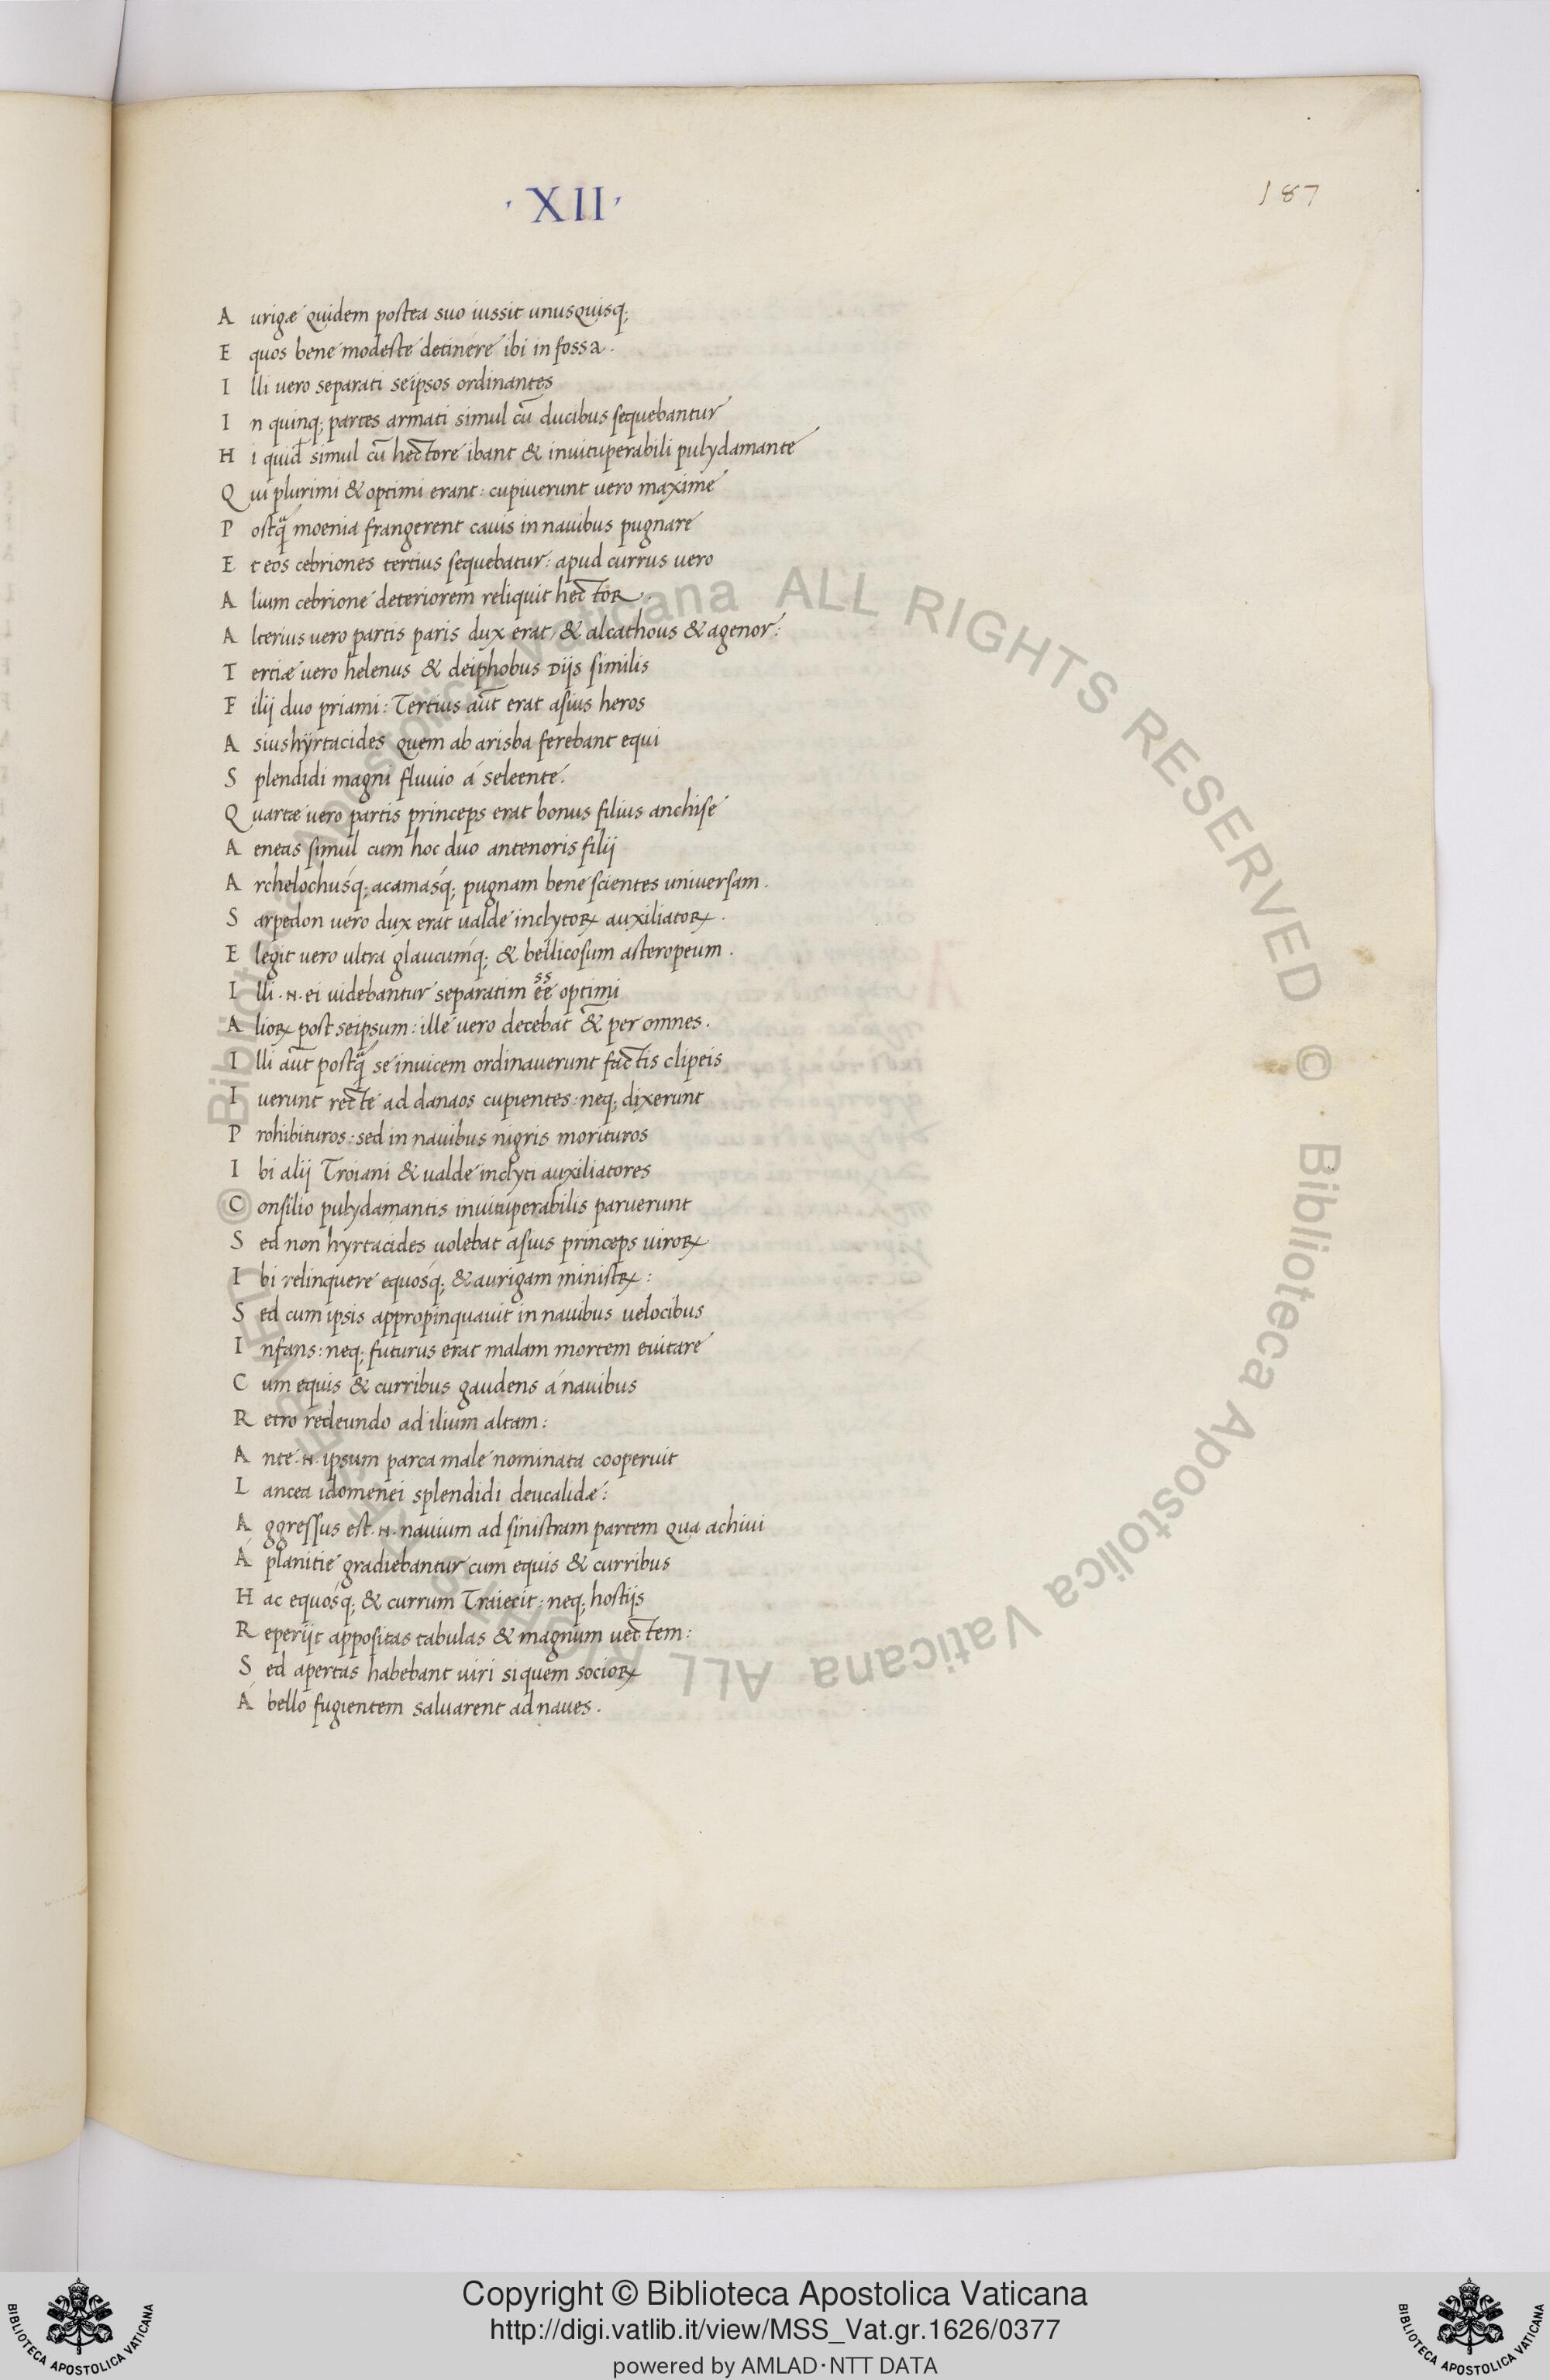 · XII ·
187
A urigæ quidem postea suo iussit unusquisq;
E quos bene modeste detinere ibi in fossa.
I lli uero separati seipsos ordinantes
I n quinq; partes armati simul cū ducibus sequebantur
H i quid̄ simul cū hectore ibant & inuituperabili pulydamante
Q ui plurimi & optimi erant: cupiuerunt uero maxime
P ostq̄ moenia frangerent cauis in nauibus pugnare
E t eos cebriones tertius sequebatur: apud currus uero
A lium cebrione deteriorem reliquit hector.
A lterius uero partis paris dux erat, & alcathous & agenor:
T ertiæ uero helenus & deiphobus Diis similis
F ilij duo priami: Tertius aūt erat asius heros
A sius hyrtacides quem ab arisba ferebant equi
S plendidi magni fluuio á seleente.
Q uartæ uero partis princeps erat bonus filius anchise
A eneas simul cum hoc duo antenoris filij
A rchelochusq́; acamasq́; pugnam bene scientes uniuersam.
S arpedon uero dux erat ualde inclytoꝝ auxiliatoꝝ.
E legit uero ultra glaucumq́; & bellicosum asteropeum.
I lli .N. ei uidebantur separatim ee᷒ optimi
A lioꝝ post seipsum: ille uero decebat & per omnes.
I lli aūt postq̄ se inuicem ordinauerunt factis clipeis
I uerunt recte ad danaos cupientes: neq; dixerunt
P rohibituros: sed in nauibus nigris morituros
I bi alij Troiani & ualde inclyti auxiliatores
C onsilio pulydamantis inuituperabilis paruerunt
S ed non hyrtacides uolebat asius princeps uiroꝝ
I bi relinquere equosq́; & aurigam ministꝝ:
S ed cum ipsis appropinquauit in nauibus uelocibus
I nfans: neq; futurus erat malam mortem euitare
C um equis & curribus gaudens á nauibus
R etro redeundo ad ilium altam:
A nte .N. ipsum parca male nominata cooperuit
L ancea idomenei splendidi deucalidæ:
A ggressus est .N. nauium ad sinistram partem qua achiui
Á planitie gradiebantur cum equis & curribus
H ac equosq́; & currum Traiecit: neq; hostijs
R eperijt appositas tabulas & magnum uectem:
S ed apertas habebant uiri si quem socioꝝ
Á bello fugientem saluarent ad naues.
© Biblioteca Apostolica Vaticana ALL RIGHTS RESERVED © Biblioteca Apostolica Vaticana ALL RIGHTS RESERVED
BIBLIOTECA APOSTOLICA VATICANA
Copyright © Biblioteca Apostolica Vaticana
http://digi.vatlib.it/view/MSS_Vat.gr.1626/0377
powered by AMLAD·NTT DATA
BIBLIOTECA APOSTOLICA VATICANA